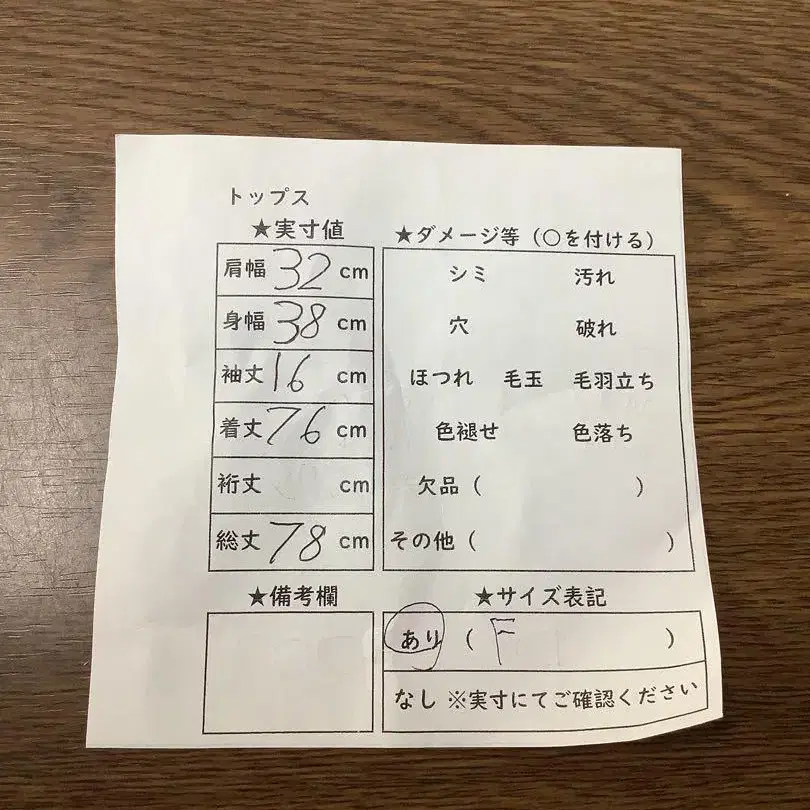 トップス
★実寸値
肩幅 32 cm
身幅 38 cm
袖丈 16 cm
着丈 76 cm
裄丈 cm
総丈 78 cm
★ダメージ等（○を付ける）
シミ 汚れ
穴 破れ
ほつれ 毛玉 毛羽立ち
色褪せ 色落ち
欠品（ ）
その他（ ）
★備考欄
★サイズ表記
あり（ F ）
なし ※実寸にてご確認ください